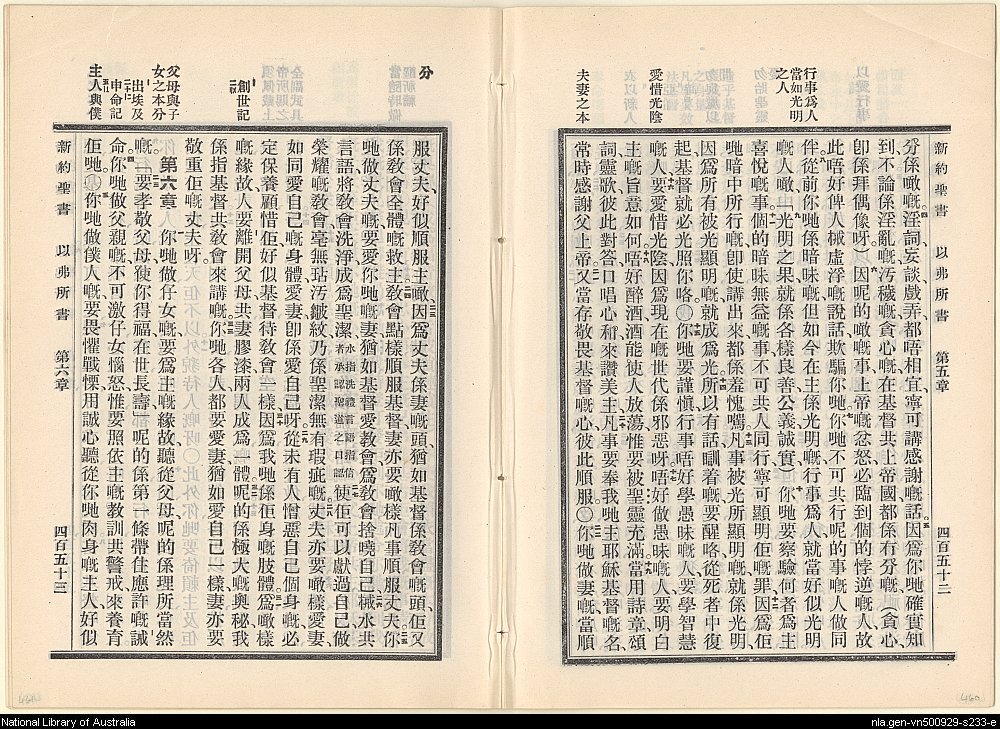 新約聖書 以弗所書 第五章 四百五十二
行事為人
當如光明
之人
愛惜光陰
夫妻之本
分係噉嘅、淫詞、妄談、戲弄、都唔相宜、寧可講感謝嘅話、因為你哋確實知
到、不論係淫亂嘅、污穢嘅、貪心嘅、在基督共上帝國都係冇分嘅、（貪心、
卽係拜偶像呀、）因呢的嘅事、上帝嘅忿怒必臨到個的悖逆嘅人、故
此唔好俾人械虛浮嘅說話欺騙你哋、你哋不可共行呢的事嘅人做同
伴、從前你哋係暗昧嘅、但如今在主係光明嘅、行事為人、就當好似光明
嘅人噉、光明之果、就係各樣良善、公義、誠實、你哋要察驗何者為主
喜悅嘅事、個的暗昧無益嘅事、不可共人同行、寧可顯明佢嘅罪、因為佢
哋暗中所行嘅、卽使講出來都係羞愧嘅、凡事被光所顯明嘅、就係光明、
因為所有被光顯明嘅、就成為光、所以有話、瞓着嘅要醒咯、從死者中復
起、基督就必光照你咯。〇你哋要謹愼行事、唔好學愚昧嘅人、要學智慧
嘅人、要愛惜光陰、因為現在嘅世代係邪惡呀、唔好做愚昧嘅人、要明白
主嘅旨意如何、唔好醉酒、酒能使人放蕩、惟要被聖靈充滿、當用詩章、頌
詞、靈歌、彼此對答、口唱心和來讚美主、凡事要奉我哋主耶穌基督嘅名、
常時感謝父上帝、又當存敬畏基督嘅心、彼此順服。〇你哋做妻嘅、當順
分
創世記
父母與子
女之本分
出埃及
申命記
主人與僕
服丈夫、好似順服主噉、因為丈夫係妻嘅頭、猶如基督係敎會嘅頭、佢又
係敎會全體嘅救主、敎會點樣順服基督、妻亦要噉樣、凡事順服丈夫、你
哋做丈夫嘅、要愛你哋嘅妻、猶如基督愛敎會、為敎會捨曉自己、械水共
言語將敎會洗淨成為聖潔、水指洗禮、言語指信者承認聖道之口認、使佢可以獻過自己、做
榮耀嘅敎會、毫無玷污皺紋、乃係聖潔無有瑕疵嘅、丈夫亦要噉樣愛妻、
如同愛自己嘅身體、愛妻卽係愛自己呀、從未有人憎惡自己個身嘅、必
定保養顧惜佢、好似基督待敎會一樣、因為我哋係佢身嘅肢體、為噉樣
嘅緣故、人要離開父母、共妻膠漆、兩人成為一體、呢的係極大嘅奧秘、我
係指基督共敎會來講嘅、你哋各人都要愛妻、猶如愛自己一樣、妻亦要
敬重佢嘅丈夫呀。
第六章 你哋做仔女嘅、要為主嘅緣故、聽從父母、呢的係理所當然
嘅、要孝敬父母、使你得福、在世長壽、呢的係第一條帶住應許嘅誡
命、你哋做父親嘅、不可激仔女惱怒、惟要照依主嘅教訓共警戒來養育
佢哋。〇你哋做僕人嘅、要畏懼戰慄、用誠心聽從你哋肉身嘅主人、好似
新約聖書 以弗所書 第六章 四百五十三
460
National Library of Australia
nla.gen-vn500929-s233-e